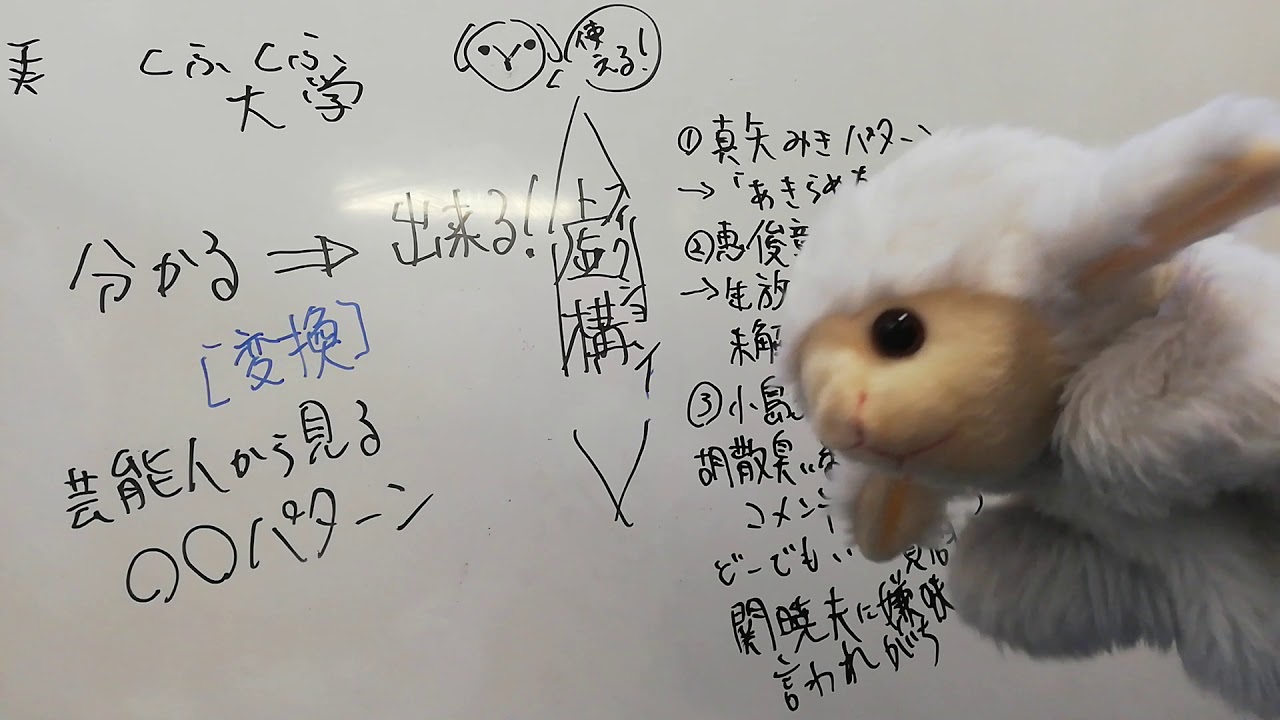 くふくふ
大学
使
える!
分かる ⇒ 出来る!
[変換]
芸能人から見る
〇〇パターン
虚構
フィクション
①真矢みきパターン
→「あきらめ
②恵俊
→生放
未解
③小島
胡散臭いな
コメント
どーでもい
関暁夫に嫌味
言われがち